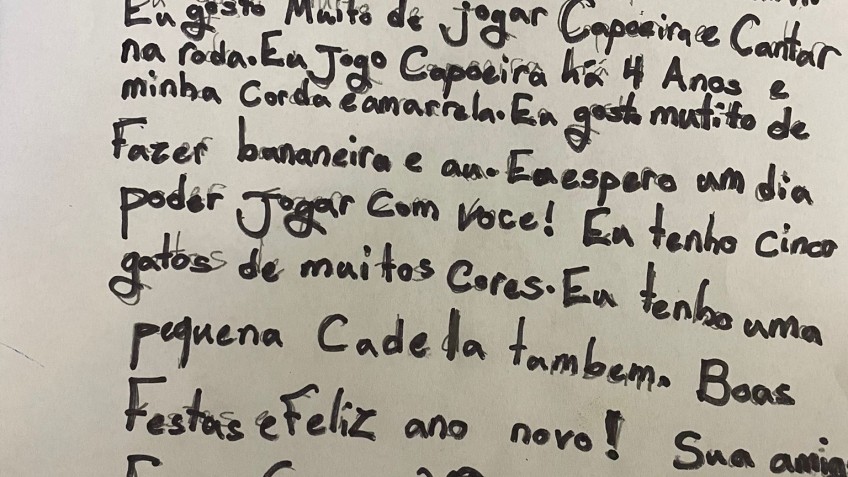 Eu gosto Muito de jogar Capoeira e Cantar
na roda. Eu Jogo Capoeira há 4 Anos e
minha Corda é amarrela. Eu gosto mutito de
Fazer bananeira e au. Eu espero um dia
poder Jogar com voce! Eu tenho cinco
gatos de muitos Cores. Eu tenho uma
pequena Cadela tambem. Boas
Festas e Feliz ano novo! Sua amig